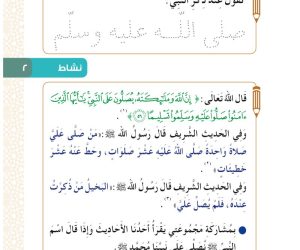 نقول عند ذكر النبي :
صلى الله عليه وسلم
نشاط ٢
قال اللهُ تَعَالَى: ﴿ إِنَّ ٱللَّهَ وَمَلَٰٓئِكَتَهُۥ يُصَلُّونَ عَلَى ٱلنَّبِيِّ يَٰٓأَيُّهَا ٱلَّذِينَ
ءَامَنُوا۟ صَلُّوا۟ عَلَيْهِ وَسَلِّمُوا۟ تَسْلِيمًا ۝٥٦ ﴾
وَفِي الحَدِيثِ الشَّرِيفِ قَالَ رَسُولُ اللهِ ﷺ: «مَنْ صَلَّى عَلَيَّ
صَلاةً وَاحِدَةً صَلَّى اللهُ عَلَيْهِ عَشْرَ صَلَوَاتٍ، وحَطَّ عَنْهُ عَشْرَ
خَطِيئَاتٍ»
وَفِي الحَدِيثِ الشَّرِيفِ قَالَ رَسُولُ اللهِ ﷺ: «البَخيلُ مَنْ ذُكِرْتُ
عِنْدَهُ، فَلَمْ يُصَلِّ عَلَيَّ»
بِمُشَارَكَةِ مَجْمُوعَتِي يَقْرَأُ أَحَدُنَا الأَحَادِيثَ وَإِذَا قَالَ اسْمَ
النَّبِيِّ ﷺ نُصَلِّي عَلَى نَبِيِّنَا مُحَمَّدٍ ﷺ.